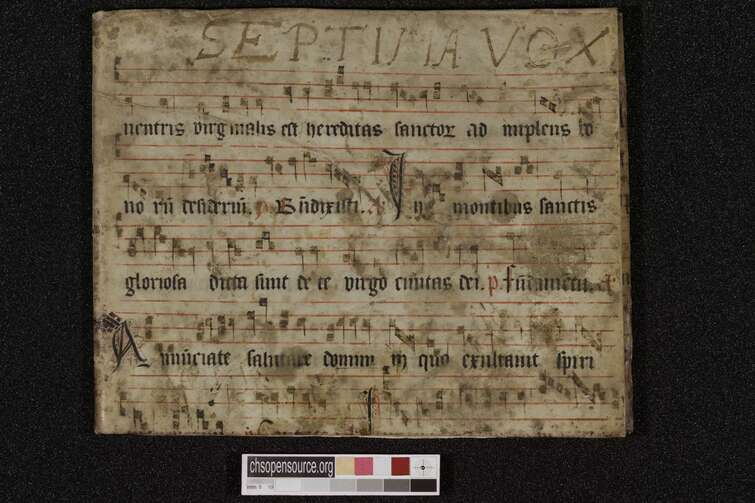 SEPTIMA VOX
uentris virginalis est hereditas sanctoꝝ ad implens bo
no ru̅ desideriu̅. p. Bn̅dixisti. A In montibus sanctis
gloriosa dicta sunt de te virgo ciuitas dei. p. fu̅dame̅tu̅. A
Annu̅ciate salutare domini in quo exultauit spiri
chsopensource.org